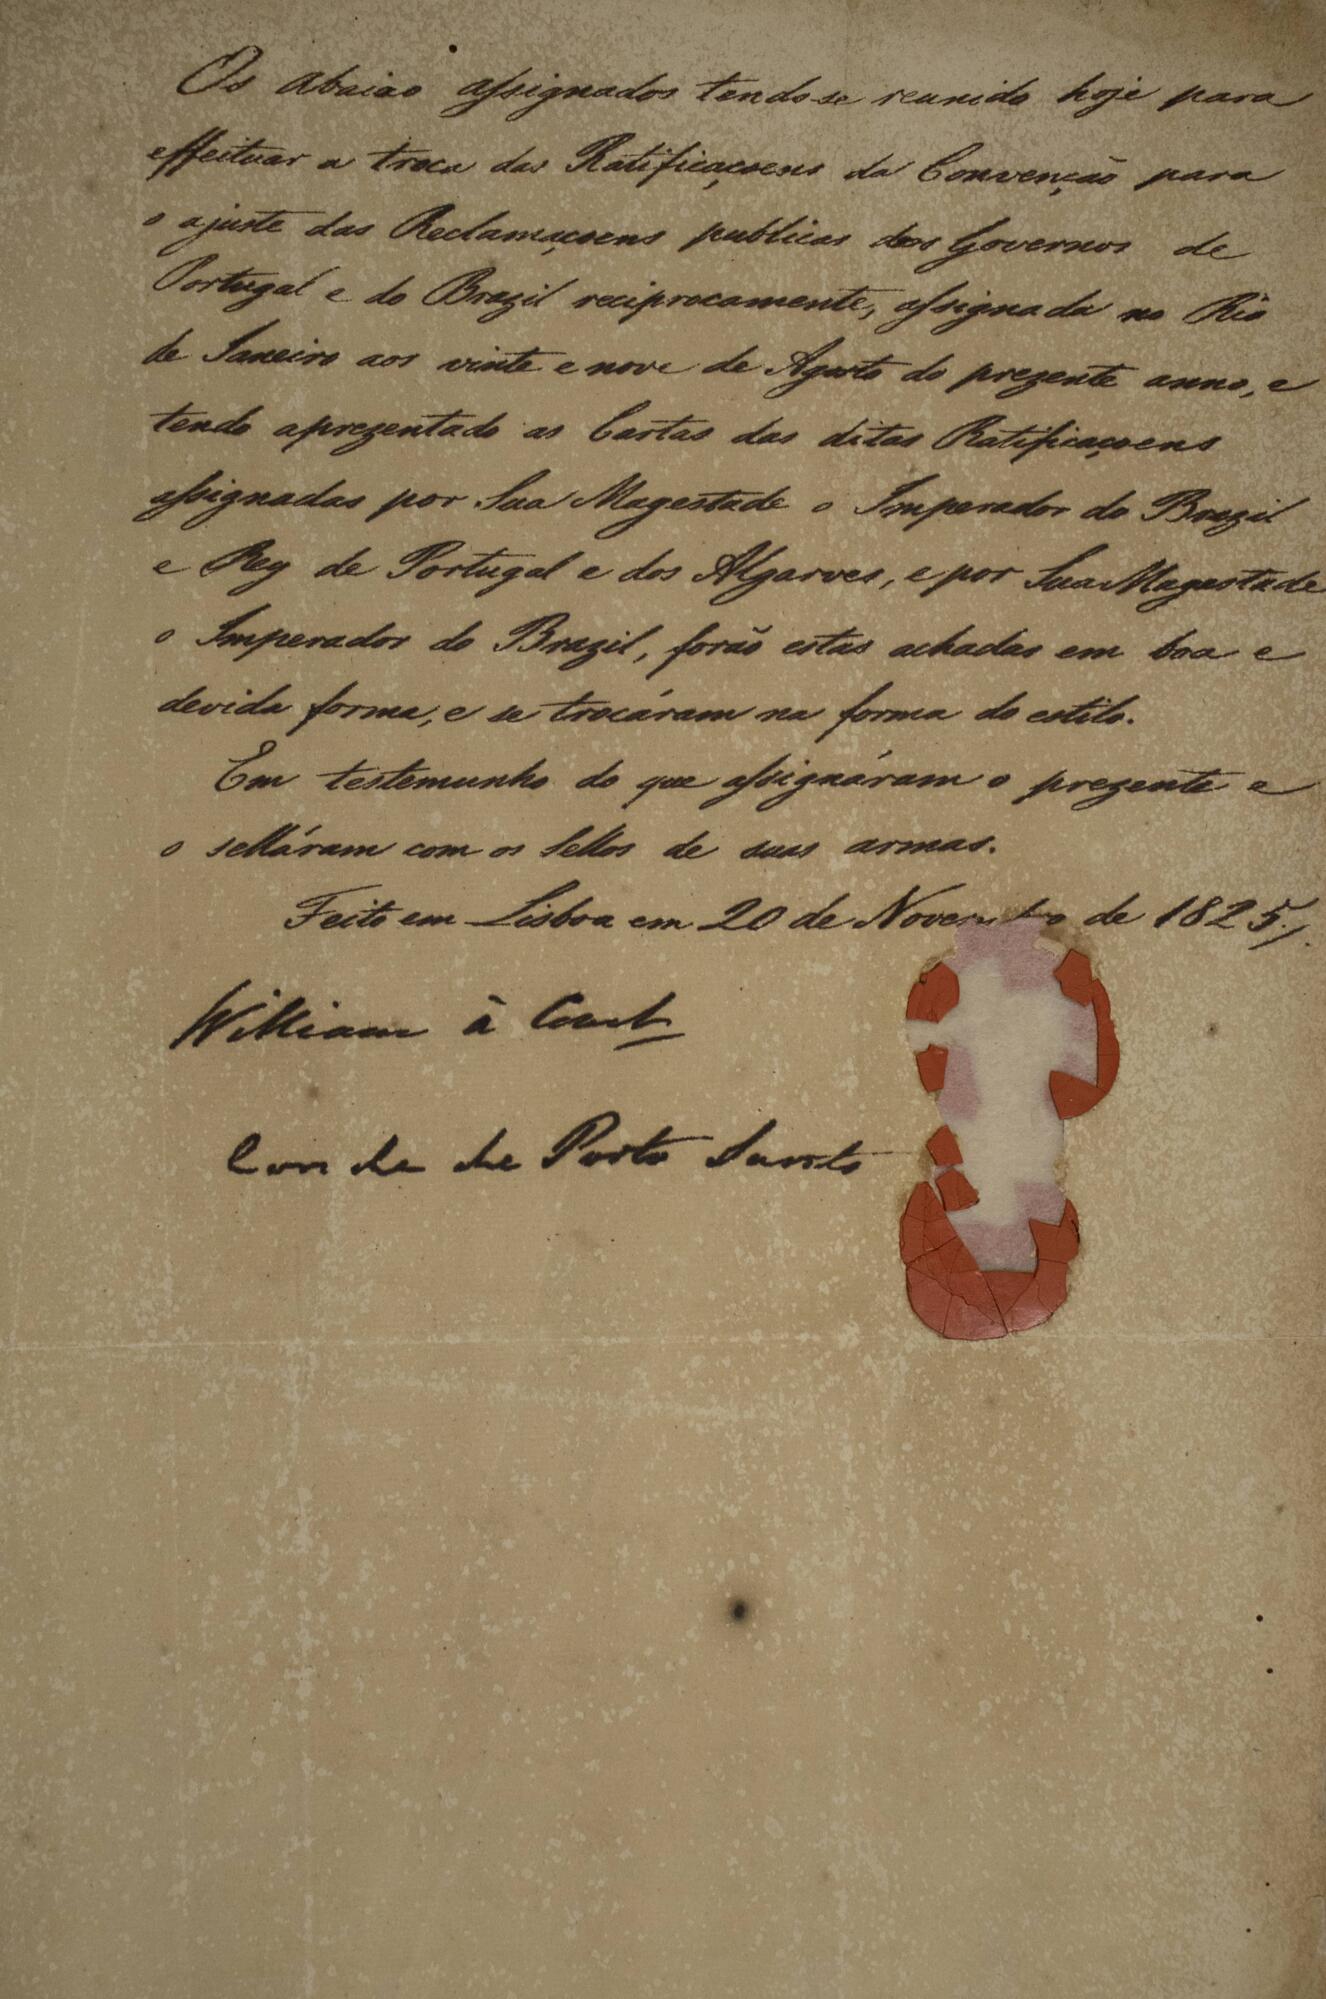 Os abaixo assignados tendo-se reunido hoje para
effeituar a troca das Ratificaçoens da Convenção para
o ajuste das Reclamaçoens publicas dos Governos de
Portugal e do Brazil reciprocamente, assignada no Rio
de Janeiro aos vinte e nove de Agosto do prezente anno, e
tendo aprezentado as Cartas das ditas Ratificaçoens
assignadas por Sua Magestade o Imperador do Brazil
e Rey de Portugal e dos Algarves, e por Sua Magestade
o Imperador do Brazil, forão estas achadas em boa e
devida forma, e se trocáram na forma do estilo.
Em testemunho do que assignáram o prezente e
o selláram com os Sellos de suas armas.
Feito em Lisboa em 20 de Novembro de 1825./.
William à Court
Conde de Porto Santo